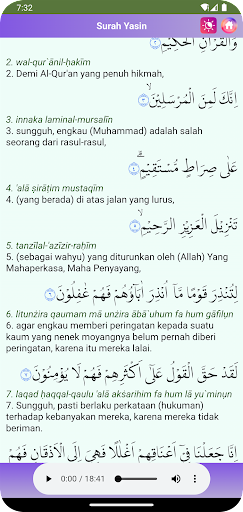 7:32
Surah Yasin
وَالْقُرْاٰنِ الْحَكِيْمِۙ ٢
2. wal-qur`ānil-ḥakīm
2. Demi Al-Qur'an yang penuh hikmah,
اِنَّكَ لَمِنَ الْمُرْسَلِيْنَۙ ٣
3. innaka laminal-mursalīn
3. sungguh, engkau (Muhammad) adalah salah
seorang dari rasul-rasul,
عَلٰى صِرَاطٍ مُّسْتَقِيْمٍۗ ٤
4. 'alā ṣirāṭim mustaqīm
4. (yang berada) di atas jalan yang lurus,
تَنْزِيْلَ الْعَزِيْزِ الرَّحِيْمِۙ ٥
5. tanzīlal-'azīzir-raḥīm
5. (sebagai wahyu) yang diturunkan oleh (Allah) Yang
Mahaperkasa, Maha Penyayang,
لِتُنْذِرَ قَوْمًا مَّآ اُنْذِرَ اٰبَاۤؤُهُمْ فَهُمْ غٰفِلُوْنَ ٦
6. litunżira qaumam mā unżira ābā`uhum fa hum gāfilụn
6. agar engkau memberi peringatan kepada suatu
kaum yang nenek moyangnya belum pernah diberi
peringatan, karena itu mereka lalai.
لَقَدْ حَقَّ الْقَوْلُ عَلٰٓى اَكْثَرِهِمْ فَهُمْ لَا يُؤْمِنُوْنَ ٧
7. laqad ḥaqqal-qaulu 'alā akṡarihim fa hum lā yu`minụn
7. Sungguh, pasti berlaku perkataan (hukuman)
terhadap kebanyakan mereka, karena mereka tidak
beriman.
اِنَّا جَعَلْنَا فِيْٓ اَعْنَاقِهِمْ اَغْلٰلًا فَهِيَ اِلَى الْاَذْقَانِ فَهُمْ
0:00 / 18:41